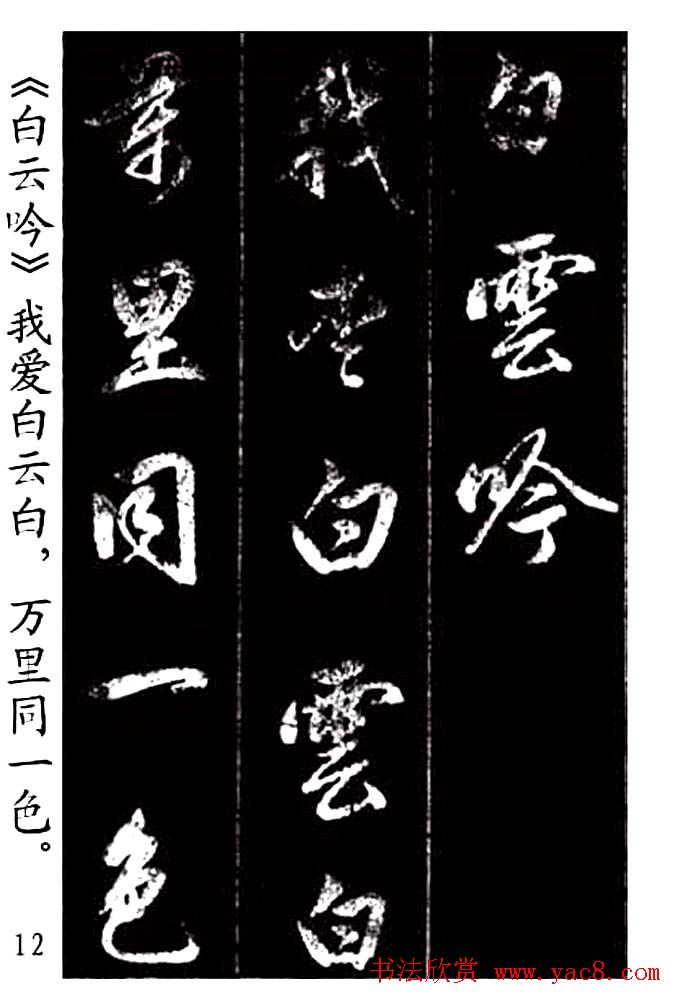 白雲吟
我愛白雲白
萬里同一色
《白云吟》我爱白云白，万里同一色。
12
书法欣赏 www.yac8.com